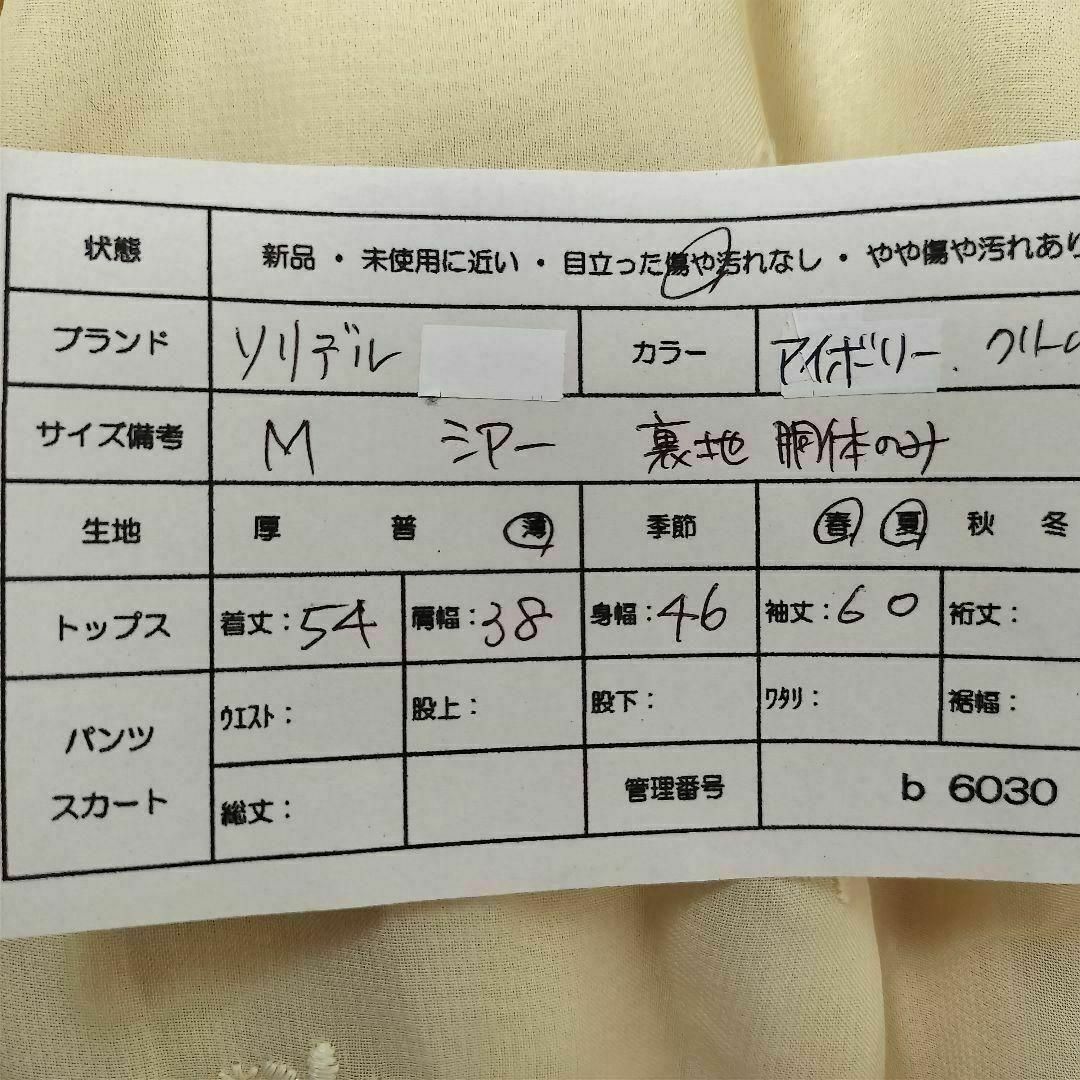 状態 新品 ・ 未使用に近い ・ 目立った傷や汚れなし ・ やや傷や汚れあり
ブランド ソリデル カラー アイボリー.
サイズ備考 M シアー 裏地 胴体のみ
生地 厚 普 薄 季節 春 夏 秋 冬
トップス 着丈：54 肩幅：38 身幅：46 袖丈：60 裄丈：
パンツ ウエスト： 股上： 股下： ワタリ： 裾幅：
スカート 総丈： 管理番号 b 6030